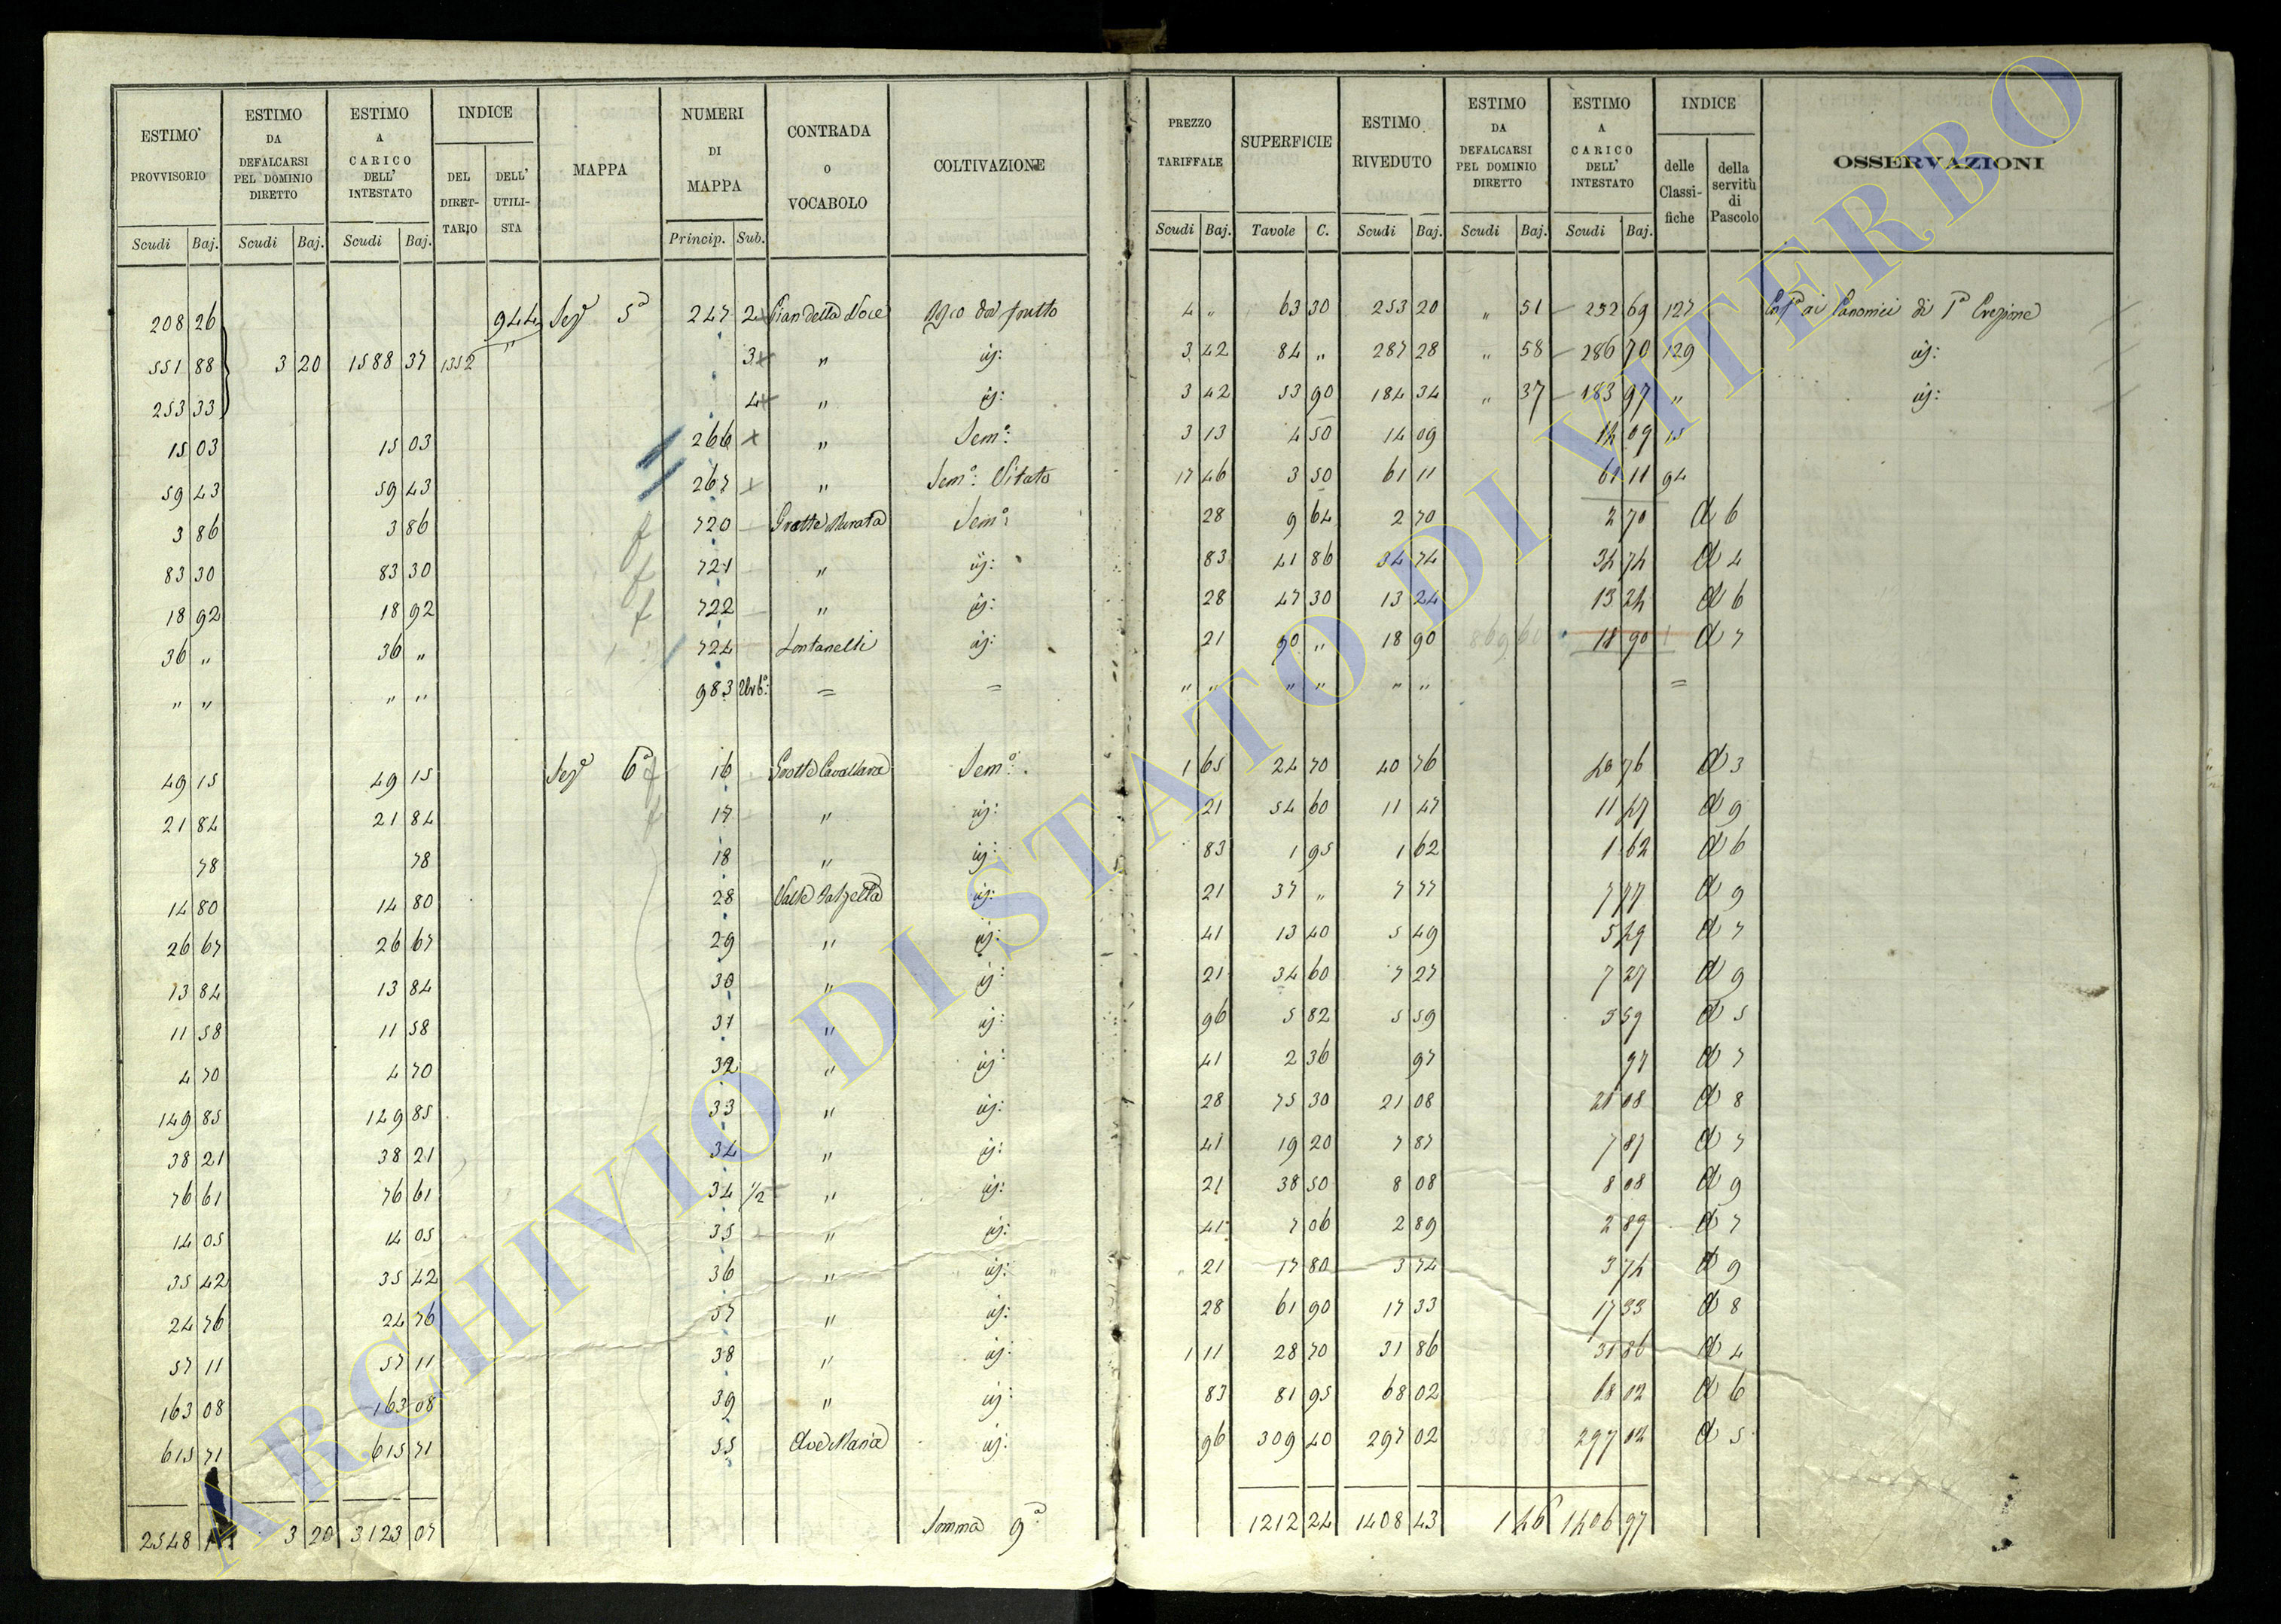 ESTIMO PROVVISORIO | ESTIMO DA DEFALCARSI PEL DOMINIO DIRETTO | ESTIMO A CARICO DELL' INTESTATO | INDICE | MAPPA | NUMERI DI MAPPA | CONTRADA o VOCABOLO | COLTIVAZIONE | PREZZO TARIFFALE | SUPERFICIE | ESTIMO RIVEDUTO | ESTIMO DA DEFALCARSI PEL DOMINIO DIRETTO | ESTIMO A CARICO DELL' INTESTATO | INDICE | OSSERVAZIONI
DEL DIRETTARIO | DELL' UTILISTA | delle Classifiche | della servitù di Pascolo
Scudi Baj. | Scudi Baj. | Scudi Baj. | Princip. Sub. | Scudi Baj. | Tavole C. | Scudi Baj. | Scudi Baj. | Scudi Baj.
208 26 944 Sez.e 5a 247 2 Pian della Noce 4 " 63 30 253 20 " 51 252 69 127 ai Canonici di Pa Erezione
551 88 3 20 1588 37 1352 " 3 " id: 3 42 84 " 287 28 " 58 286 70 129 id:
253 33 4 " id: 3 42 53 90 184 34 " 37 183 97 " id:
15 03 15 03 266 " Semo: 3 13 4 50 14 09 14 09 15
59 43 59 43 267 " Semo: Vitato 17 46 3 50 61 11 61 11 94
3 86 3 86 720 Grotte Murata Semo: 28 9 64 2 70 2 70 d 6
83 30 83 30 721 " id: 83 41 86 34 74 34 74 d 4
18 92 18 92 722 " id: 28 47 30 13 24 13 24 d 6
36 " 36 " 724 Fontanelli id: 21 90 " 18 90 18 90 d 7
" " " " 983 Urbo: = = " " " " " " =
49 15 49 15 Sez.e 6a 16 Grotte Cavallara Semo: 1 65 24 70 40 76 40 76 d 3
21 84 21 84 17 " id: 21 54 60 11 47 11 47 d 9
78 78 18 " id: 83 1 95 1 62 1 62 d 6
14 80 14 80 28 Valle id: 21 37 " 7 77 7 77 d 9
26 67 26 67 29 " id: 41 13 40 5 49 5 49 d 7
13 84 13 84 30 " id: 21 34 60 7 27 7 27 d 9
11 58 11 58 31 " id: 96 5 82 5 59 5 59 d 5
4 70 4 70 32 " id: 41 2 36 97 97 d 7
149 85 149 85 33 " id: 28 75 30 21 08 21 08 d 8
38 21 38 21 34 " id: 41 19 20 7 87 7 87 d 7
76 61 76 61 34 1/2 " id: 21 38 50 8 08 8 08 d 9
14 05 14 05 35 " id: 41 7 06 2 89 2 89 d 7
35 42 35 42 36 " id: 21 17 80 3 74 3 74 d 9
24 76 24 76 37 " id: 28 61 90 17 33 17 33 d 8
57 11 57 11 38 " id: 1 11 28 70 31 86 31 86 d 4
163 08 163 08 39 " id: 83 81 95 68 02 68 02 d 6
615 71 615 71 55 Ave Maria id: 96 309 40 297 02 297 02 d 5
2548 3 20 3123 07 Somma 9a 1212 24 1408 43 1 46 1406 97
ARCHIVIO DI STATO DI VITERBO